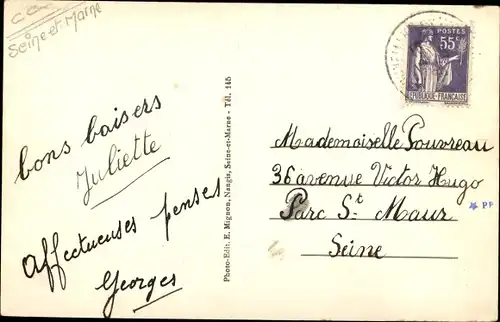 Seine et Marne
bons baisers
Juliette
Affectueuses penses
Georges
Photo-Edit. E. Mignon, Nangis, Seine-et-Marne - Tél. 145
POSTES
55c
RÉPUBLIQUE-FRANÇAISE
Mademoiselle Pouvreau
36 avenue Victor Hugo
Parc St Maur
Seine
PF